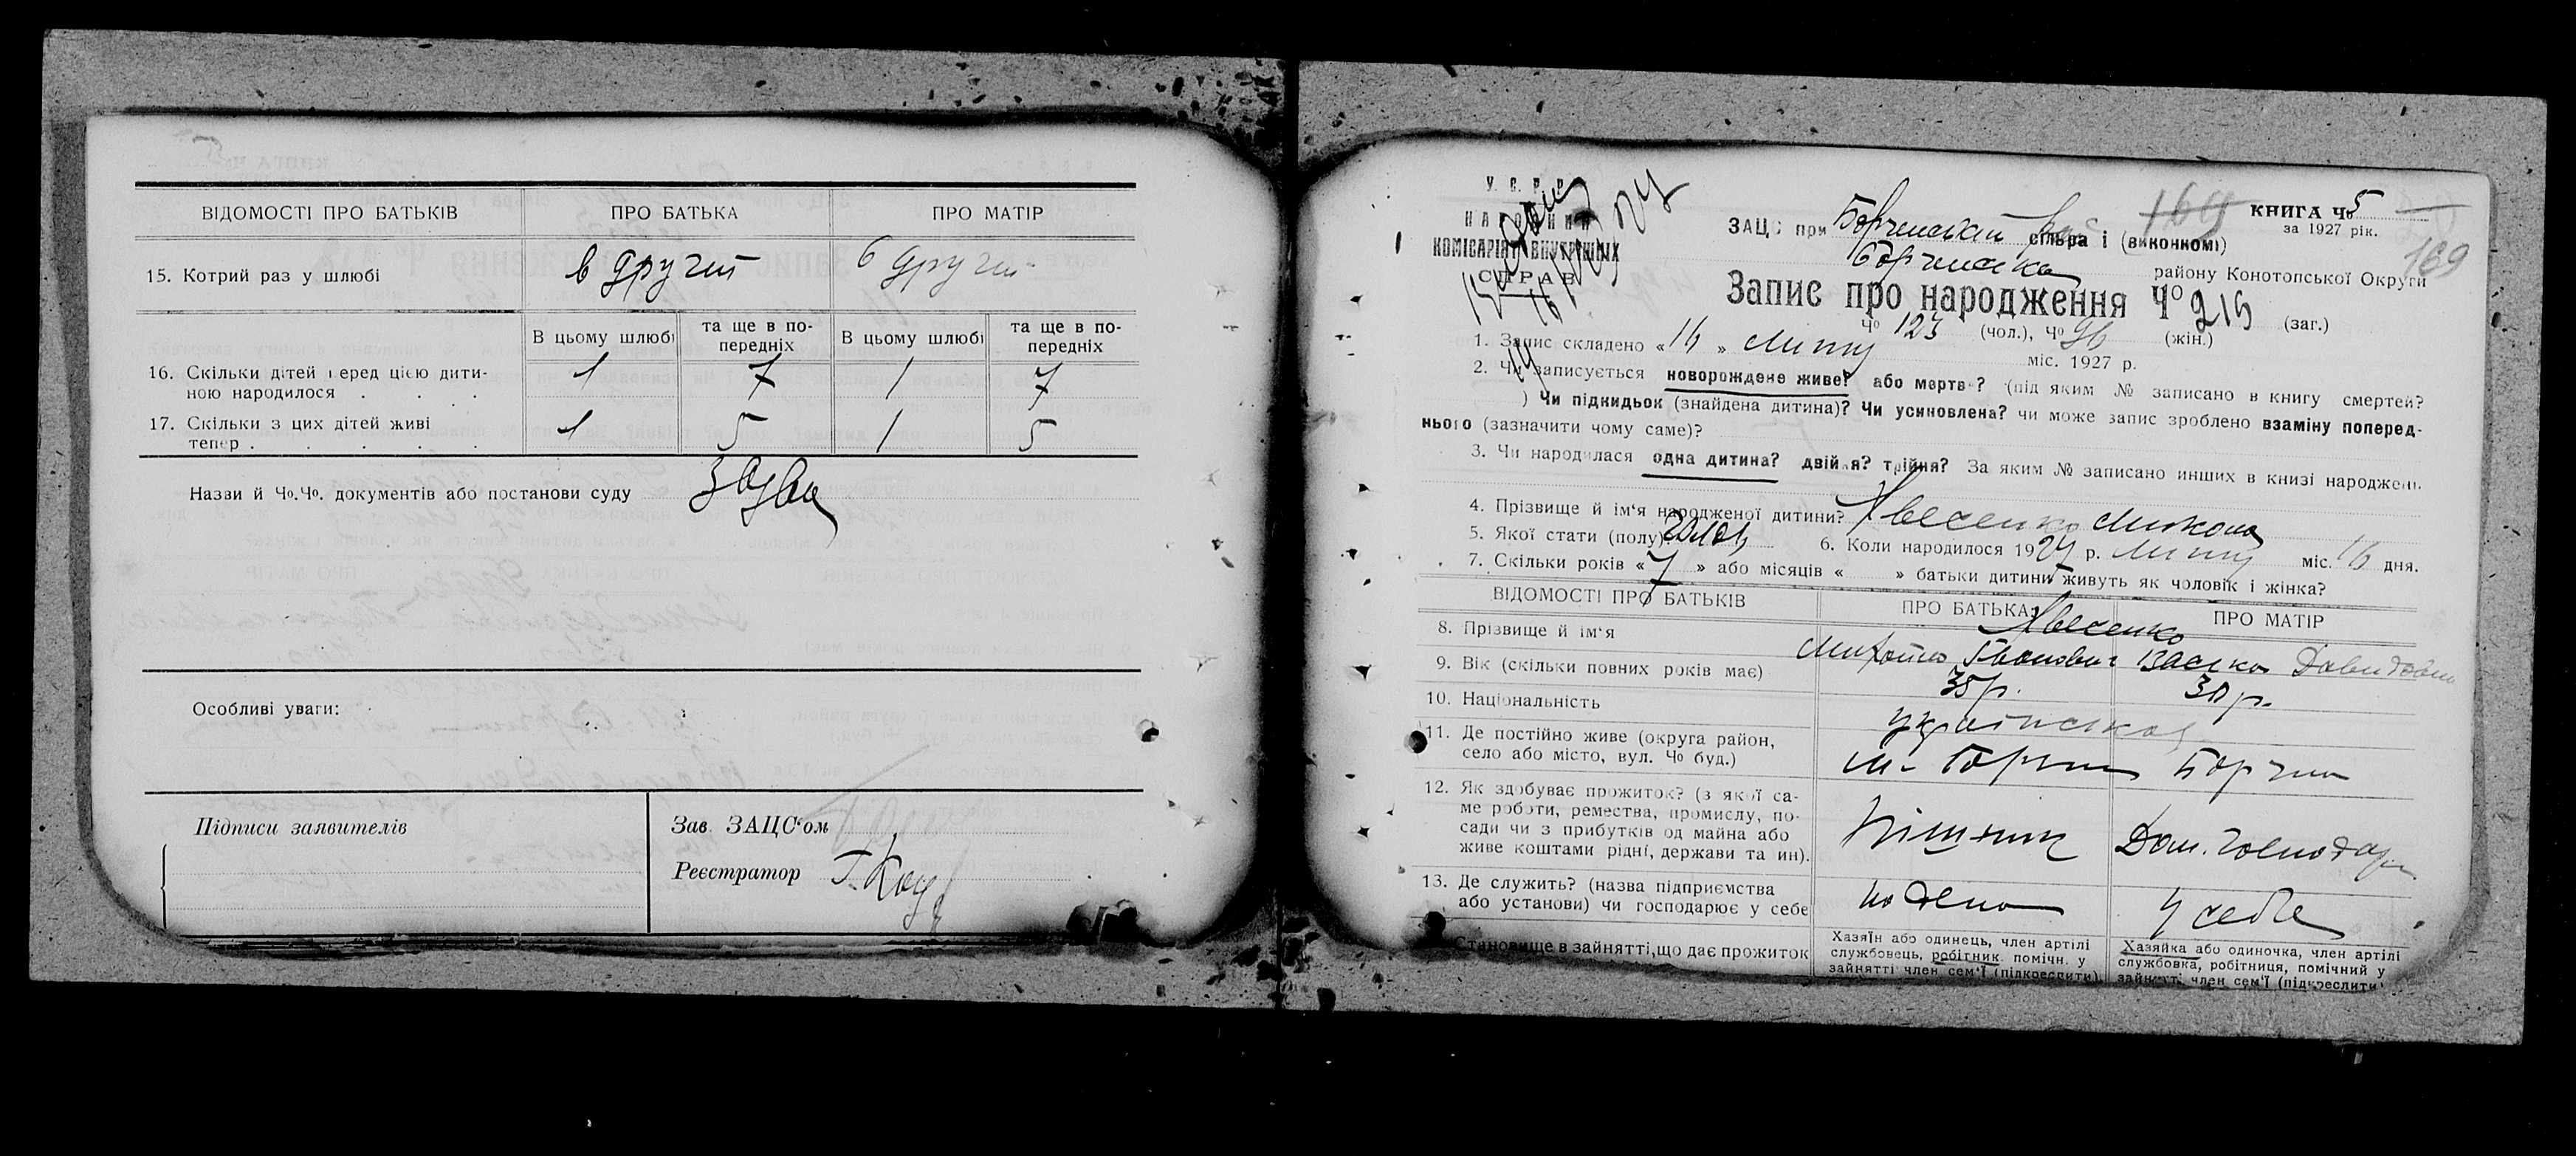 ВІДОМОСТІ ПРО БАТЬКІВ ПРО БАТЬКА ПРО МАТІР
15. Котрий раз у шлюбі в другий в другий
В цьому шлюбі та ще в по-передніх В цьому шлюбі та ще в по-передніх
16. Скільки дітей перед цією дити-
ною народилося . . . 1 7 1 7
17. Скільки з цих дітей живі
тепер . . . . . 1 5 1 5
Назви й Чо.Чо. документів або постанови суду
Особливі уваги:
Підписи заявителів
Зав. ЗАЦС'ом
Реєстратор
У. С. Р. Р.
НАРОДНИЙ
КОМІСАРІЯТ ВНУТРІШНІХ
СПРАВ
164
КНИГА Чо 5
за 1927 рік.
169
ЗАЦС при сільраді (виконкомі)
району Конотопської Округи
Запис про народження Чо 219 (заг.)
Чо 123 (чол.), Чо 96 (жін.)
1. Запис складено «16» липня міс. 1927 р.
2. Чи записується новорождене живе? або мертве? (під яким № записано в книгу смертей?
) Чи підкидьок (знайдена дитина)? Чи усиновлена? чи може запис зроблено взаміну поперед-
нього (зазначити чому саме)?
3. Чи народилася одна дитина? двійня? трійня? За яким № записано инших в книзі народжень
4. Прізвище й ім'я народженої дитини? Явсенко Микола
5. Якої стати (полу) чолов 6. Коли народилося 1927 р. липня міс. 16 дня.
7. Скільки років «7» або місяців « » батьки дитини живуть як чоловік і жінка?
ВІДОМОСТІ ПРО БАТЬКІВ ПРО БАТЬКА ПРО МАТІР
8. Прізвище й ім'я Явсенко
Михайло Іванович Давидовна
9. Вік (скільки повних років має) 35 р. 30 р.
10. Національність українська
11. Де постійно живе (округа район,
село або місто, вул. Чо буд.) м. Борзна Борзна
12. Як здобуває прожиток? (з якої са-
ме роботи, ремества, промислу, по-
сади чи з прибутків од майна або
живе коштами рідні, держави та ин). Дом. господар
13. Де служить? (назва підприємства
або установи) чи господарює у себе у себе
Становище в зайнятті, що дає прожиток
Хазяїн або одинець, член артілі
службовець, робітник. помічн. у
зайнятті член сем'ї (підкреслити).
Хазяйка або одиночка, член артілі
службовка, робітниця, помічний у
зайнятті член сем'ї (підкреслити)